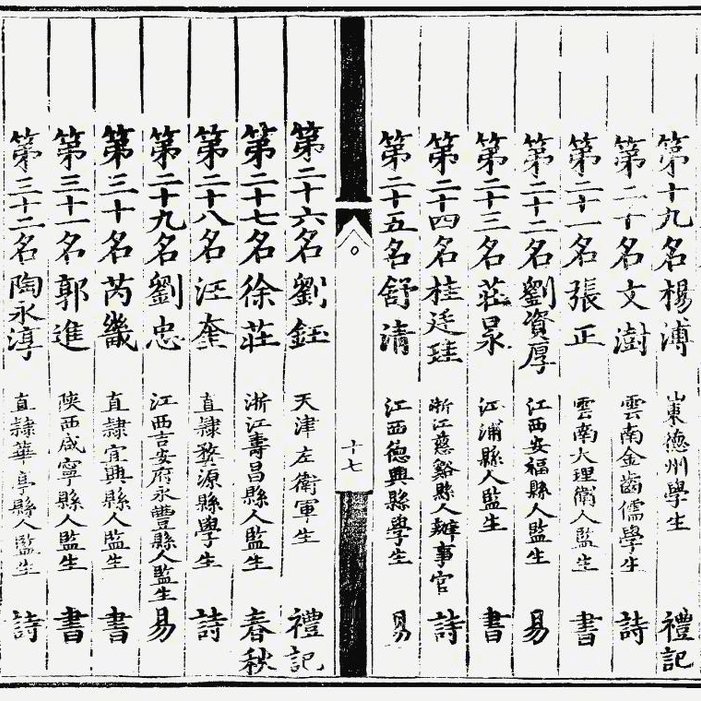 第十九名楊溥 山東德州學生 禮記
第二十名文澍 雲南金齒儒學生 詩
第二十一名張正 雲南大理衛人監生 書
第二十二名劉資厚 江西安福縣人監生 易
第二十三名莊㫤 江浦縣人監生 書
第二十四名桂廷珪 浙江慈谿縣人辦事官 詩
第二十五名舒清 江西德興縣學生 易
十七
第二十六名劉鈺 天津左衛軍生 禮記
第二十七名徐莊 浙江壽昌縣人監生 春秋
第二十八名汪奎 直隸婺源縣學生 詩
第二十九名劉忠 江西吉安府永豐縣人監生 易
第三十名芮畿 直隸宜興縣人監生 書
第三十一名郭進 陝西咸寧縣人監生 書
第三十二名陶永淳 直隸華亭縣人監生 詩